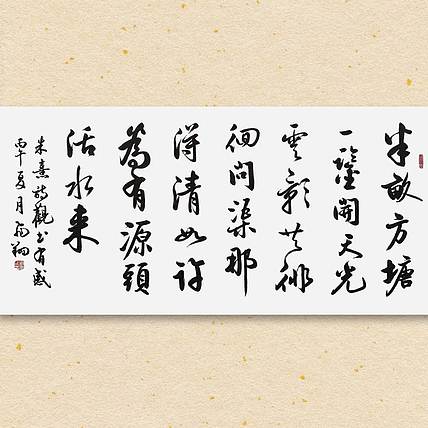 半畝方塘
一鑑開天光
雲影共徘
徊問渠那
得清如許
為有源頭
活水来
朱熹詩觀书有感
丙午夏月